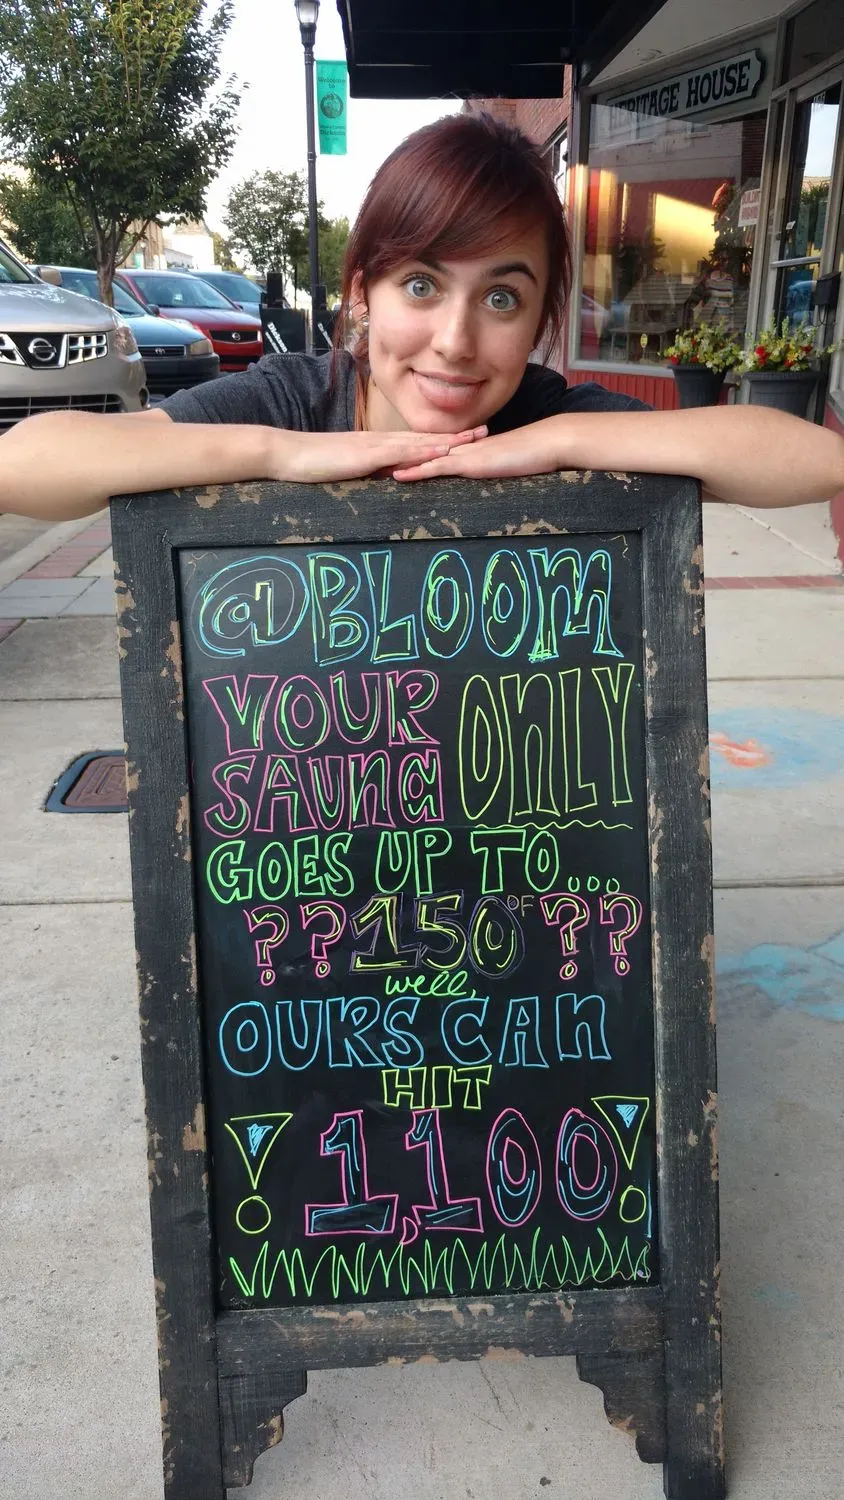 Welcome
to
HERITAGE HOUSE
@BLOOM
YOUR
SAUNA
ONLY
GOES UP TO...
??150°F??
well,
OURS CAN
HIT
!1,100!